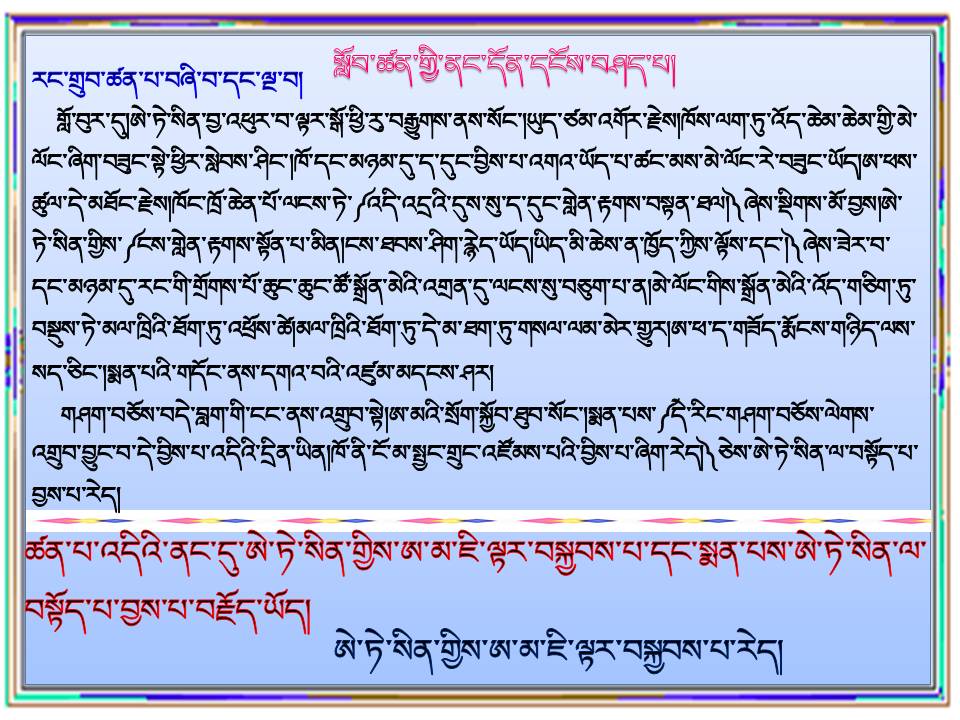 སློབ་ཚན་གྱི་ནང་དོན་དངོས་བཤད་པ།
རང་གྲུབ་ཚན་པ་བཞི་བ་དང་ལྔ་བ།
གློ་བུར་དུ།ཨེ་ཏེ་སིན་བྱ་འཕུར་བ་ལྟར་སྒོ་ཕྱི་རུ་བརྒྱུགས་ནས་སོང་།ཡུད་ཙམ་འགོར་རྗེས།ཁོས་ལག་ཏུ་འོད་ཆེམ་ཆེམ་གྱི་མེ་
ལོང་ཞིག་བཟུང་སྟེ་ཕྱིར་སླེབས་ཤིང་།ཁོ་དང་མཉམ་དུ་ད་དུང་བྱིས་པ་འགའ་ཡོད་པ་ཚང་མས་མེ་ལོང་རེ་བཟུང་ཡོད།ཨ་ཕས་
ཚུལ་དེ་མཐོང་རྗེས།ཁོང་ཁྲོ་ཆེན་པོ་ལངས་ཏེ་༼འདི་འདྲའི་དུས་སུ་ད་དུང་གླེན་རྟགས་བསྟན་ཐལ།༽ཞེས་སྡིགས་མོ་བྱས།ཨེ་
ཏེ་སིན་གྱིས་༼ངས་གླེན་རྟགས་སྟོན་པ་མིན།ངས་ཐབས་ཤིག་རྙེད་ཡོད།ཡིད་མི་ཆེས་ན་ཁྱོད་ཀྱིས་ལྟོས་དང་།༽ཞེས་ཟེར་བ་
དང་མཉམ་དུ་རང་གི་གྲོགས་པོ་ཆུང་ཆུང་ཚོ་སྒྲོན་མེའི་འགྲན་དུ་ལངས་སུ་བཅུག་པ་ན།མེ་ལོང་གིས་སྒྲོན་མེའི་འོད་གཅིག་ཏུ་
བསྡུས་ཏེ་མལ་ཁྲིའི་ཐོག་ཏུ་འཕྲོས་ཚེ།མལ་ཁྲིའི་ཐོག་ཏུ་དེ་མ་ཐག་ཏུ་གསལ་ལམ་མེར་གྱུར།ཨ་ཕ་ད་གཟོད་རྨོངས་གཉིད་ལས་
སད་ཅིང་།སྨན་པའི་གདོང་ནས་དགའ་བའི་འཛུམ་མདངས་ཤར།
གཤག་བཅོས་བདེ་བླག་གི་ངང་ནས་འགྲུབ་སྟེ།ཨ་མའི་སྲོག་སྐྱོབ་ཐུབ་སོང་།སྨན་པས་༼དེ་རིང་གཤག་བཅོས་ལེགས་
འགྲུབ་བྱུང་བ་དེ་བྱིས་པ་འདིའི་དྲིན་ཡིན།ཁོ་ནི་ངོ་མ་སྤྱང་གྲུང་འཛོམས་པའི་བྱིས་པ་ཞིག་རེད།༽ཅེས་ཨེ་ཏེ་སིན་ལ་བསྟོད་པ་
བྱས་པ་རེད།
ཚན་པ་འདིའི་ནང་དུ་ཨེ་ཏེ་སིན་གྱིས་ཨ་མ་ཇི་ལྟར་བསྐྱབས་པ་དང་སྨན་པས་ཨེ་ཏེ་སིན་ལ་
བསྟོད་པ་བྱས་པ་བརྗོད་ཡོད།
ཨེ་ཏེ་སིན་གྱིས་ཨ་མ་ཇི་ལྟར་བསྐྱབས་པ་རེད།